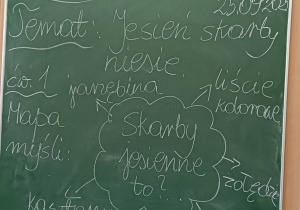 25.09.
Temat: Jesień skarby
niesie.
ćw. 1 jarzębina
liście
kolorowe
Mapa
myśli:
Skarby
jesienne
to?
żołędzie
kasztany